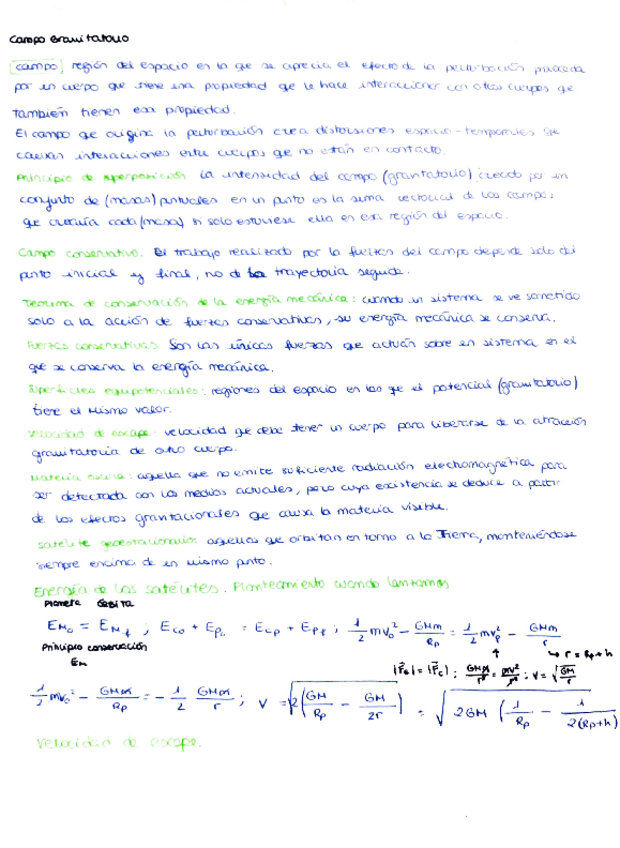 Campo Gravitatorio
campo, región del espacio en la qe se aprecia el efecto de la perturbación provocada
por un cuerpo que tiene una propiedad qe le hace interaccionar con otros cuerpos qe
también tienen esa propiedad.
El campo qe origina la perturbación crea distorsiones espacio-temporales qe
causan interacciones entre cuerpos qe no están en contacto.
Principio de superposición La intensidad del campo (gravitatorio) creado por un
conjunto de (masas) puntuales en un punto es la suma vectorial de los campos
que crearía cada (masa) si solo estuviese ella en esa región del espacio.
Campo conservativo. El trabajo realizado por la fuerzas del campo depende solo del
punto inicial y final, no d la trayectoria seguida.
Teorema de conservación de la energía mecánica: cuando un sistema se ve sometido
solo a la acción de fuerzas conservativas, su energía mecánica se conserva.
Fuerzas conservativas Son las únicas fuerzas que actúan sobre un sistema en el
qe se conserva la energía mecánica.
Superficies equipotenciales: regiones del espacio en las qe el potencial (gravitatorio)
tiene el mismo valor.
Velocidad de escape: velocidad qe debe tener un cuerpo para liberarse de la atracción
gravitatoria de otro cuerpo.
Materia oscura: aquella que no emite suficiente radiación electromagnética para
ser detectada con los medios actuales, pero cuya existencia se deduce a partir
de los efectos gravitacionales que causa la materia visible.
Satélite geoestacionario: aquellos que orbitan en torno a la Tierra, manteniéndose
siempre encima de un mismo punto.
Energía de los satélites. Planteamiento cuando lanzamos
Planeta Órbita
E_M₀ = E_Mf ; E_C₀ + E_P₀ = E_Cf + E_Pf ; 1/2 mv₀² - GMm/Rp = 1/2 mvf² - GMm/r
Principio conservación
EM
↑ ↳ r = Rp + h
|F⃗g| = |F⃗c| ; GMm/r² = mv²/r ; v = √(GM/r)
1/2 mv₀² - GMm/Rp = - 1/2 GMm/r ; v = √(2(GM/Rp - GM/2r)) = √(2GM (1/Rp - 1/2(Rp+h)
Velocidad de escape.